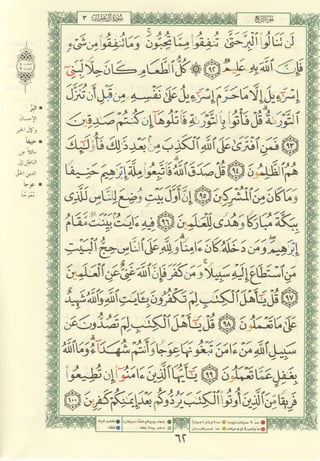 سورة آل عمران ٣
الجزء الرابع
لَن تَنَالُوا۟ ٱلْبِرَّ حَتَّىٰ تُنفِقُوا۟ مِمَّا تُحِبُّونَ ۚ وَمَا تُنفِقُوا۟ مِن شَىْءٍ
فَإِنَّ ٱللَّهَ بِهِۦ عَلِيمٌ ٩٢ ۞ كُلُّ ٱلطَّعَامِ كَانَ حِلًّا لِّبَنِىٓ
إِسْرَٰٓءِيلَ إِلَّا مَا حَرَّمَ إِسْرَٰٓءِيلُ عَلَىٰ نَفْسِهِۦ مِن قَبْلِ أَن تُنَزَّلَ
ٱلتَّوْرَىٰةُ ۗ قُلْ فَأْتُوا۟ بِٱلتَّوْرَىٰةِ فَٱتْلُوهَآ إِن كُنتُمْ صَٰدِقِينَ
٩٣ فَمَنِ ٱفْتَرَىٰ عَلَى ٱللَّهِ ٱلْكَذِبَ مِنۢ بَعْدِ ذَٰلِكَ فَأُو۟لَٰٓئِكَ
هُمُ ٱلظَّٰلِمُونَ ٩٤ قُلْ صَدَقَ ٱللَّهُ ۗ فَٱتَّبِعُوا۟ مِلَّةَ إِبْرَٰهِيمَ حَنِيفًا
وَمَا كَانَ مِنَ ٱلْمُشْرِكِينَ ٩٥ إِنَّ أَوَّلَ بَيْتٍ وُضِعَ لِلنَّاسِ لَلَّذِى
بِبَكَّةَ مُبَارَكًا وَهُدًى لِّلْعَٰلَمِينَ ٩٦ فِيهِ ءَايَٰتٌۢ بَيِّنَٰتٌ مَّقَامُ
إِبْرَٰهِيمَ ۖ وَمَن دَخَلَهُۥ كَانَ ءَامِنًا ۗ وَلِلَّهِ عَلَى ٱلنَّاسِ حِجُّ ٱلْبَيْتِ
مَنِ ٱسْتَطَاعَ إِلَيْهِ سَبِيلًا ۚ وَمَن كَفَرَ فَإِنَّ ٱللَّهَ غَنِىٌّ عَنِ ٱلْعَٰلَمِينَ
٩٧ قُلْ يَٰٓأَهْلَ ٱلْكِتَٰبِ لِمَ تَكْفُرُونَ بِـَٔايَٰتِ ٱللَّهِ وَٱللَّهُ شَهِيدٌ
عَلَىٰ مَا تَعْمَلُونَ ٩٨ قُلْ يَٰٓأَهْلَ ٱلْكِتَٰبِ لِمَ تَصُدُّونَ عَن
سَبِيلِ ٱللَّهِ مَنْ ءَامَنَ تَبْغُونَهَا عِوَجًا وَأَنتُمْ شُهَدَآءُ ۗ وَمَا ٱللَّهُ
بِغَٰفِلٍ عَمَّا تَعْمَلُونَ ٩٩ يَٰٓأَيُّهَا ٱلَّذِينَ ءَامَنُوٓا۟ إِن تُطِيعُوا۟
فَرِيقًا مِّنَ ٱلَّذِينَ أُوتُوا۟ ٱلْكِتَٰبَ يَرُدُّوكُم بَعْدَ إِيمَٰنِكُمْ كَٰفِرِينَ ١٠٠
البر
الإحسان
وكمال الخير
حنيفا
مائلا عن
الباطل إلى
الدين الحق
عوجا
معوجة
٦٢